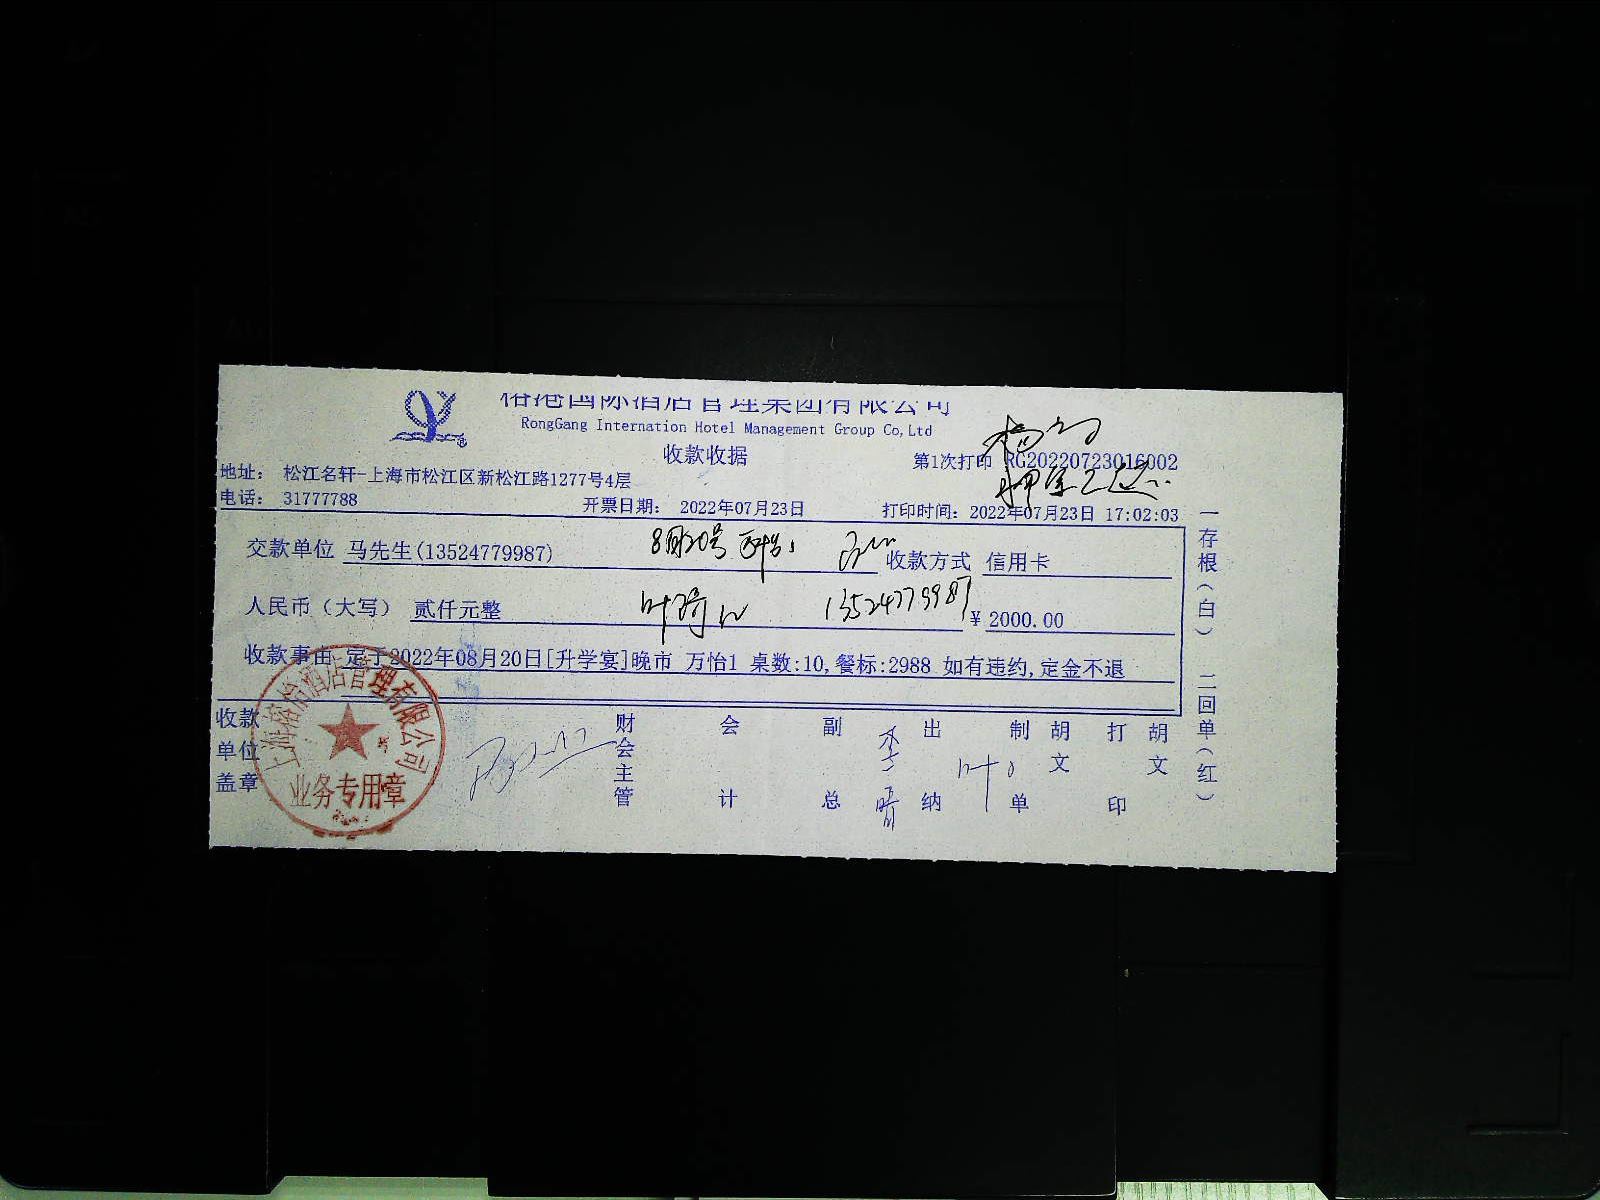 榕港国际酒店管理集团有限公司
RongGang Internation Hotel Management Group Co,Ltd
收款收据
第1次打印 RG20220723016002
地址: 松江名轩-上海市松江区新松江路1277号4层
电话: 31777788 开票日期: 2022年07月23日 打印时间: 2022年07月23日 17:02:03
押金已退
交款单位 马先生(13524779987) 8月20号 收款方式 信用卡
人民币(大写) 贰仟元整 13524779987 ¥ 2000.00
收款事由 定于2022年08月20日[升学宴]晚市 万怡1 桌数:10,餐标:2988 如有违约,定金不退
收款单位盖章 财会主管 会计 副总 出纳 叶 制单 胡文 打印 胡文
业务专用章
一存根(白) 二回单(红)